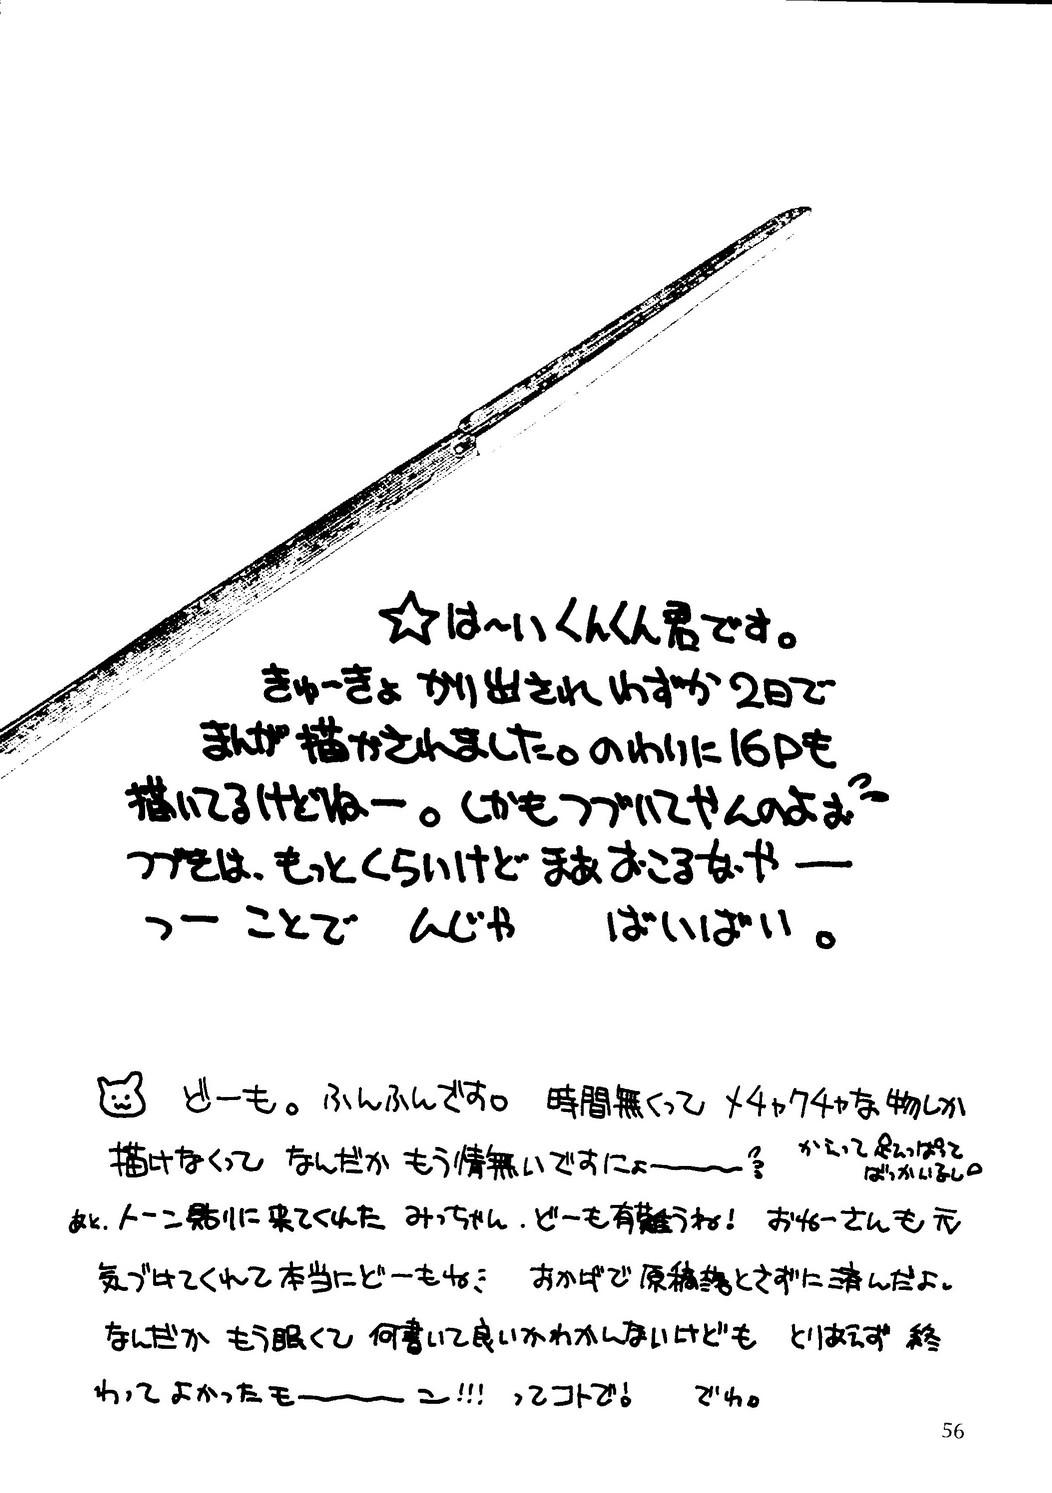 ☆は〜いくんくん君です。
きゅーきょ かり出されわずか2日で
まんが描かされました。のわりに16Pも
描いてるけどねー。しかもつづいてやんのよぉ
つづきは、もっとくらいけど まあおこるなやー
っー ことで んじゃ ばいばい。
どーも。ふんふんです。 時間無くって メチャクチャな物しか
描けなくって なんだか もう情無いですにょ〜〜
かえって足ひっぱって
ばっかいるし。
あと、トーン貼りに来てくれた みっちゃん、どーも有難うね! おねーさんも元
気づけてくれて本当にどーもね おかげで原稿落とさずに済んだよ。
なんだか もう眠くて 何書いて良いかわかんないけども とりあえず 終
わってよかったモ〜〜ン!!! ってコトで! でわ。
56